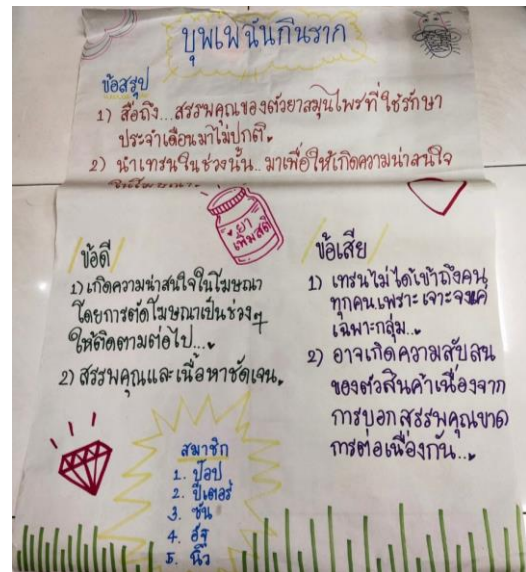 บุพเพฉันกินราก
ข้อสรุป
1) สื่อถึง...สรรพคุณของตัวยาสมุนไพรที่ใช้รักษา
ประจำเดือนมาไม่ปกติ
2) นำเทรนในช่วงนั้น..มาเพื่อให้เกิดความน่าสนใจ
ยา
เพิ่มสตรี
ข้อดี
1) เกิดความน่าสนใจในโฆษณา
โดยการตัดโฆษณาเป็นช่วงๆ
ให้ติดตามต่อไป...
2) สรรพคุณและเนื้อหาชัดเจน
ข้อเสีย
1) เทรนไม่ได้เข้าถึงคน
ทุกคนเพราะเจาะจงแค่
เฉพาะกลุ่ม..
2) อาจเกิดความสับสน
ของตัวสินค้าเนื่องจาก
การบอกสรรพคุณขาด
การต่อเนื่องกัน...
สมาชิก
1. ป๊อป
2. ปีเตอร์
3. ซัน
4.
5. นิว